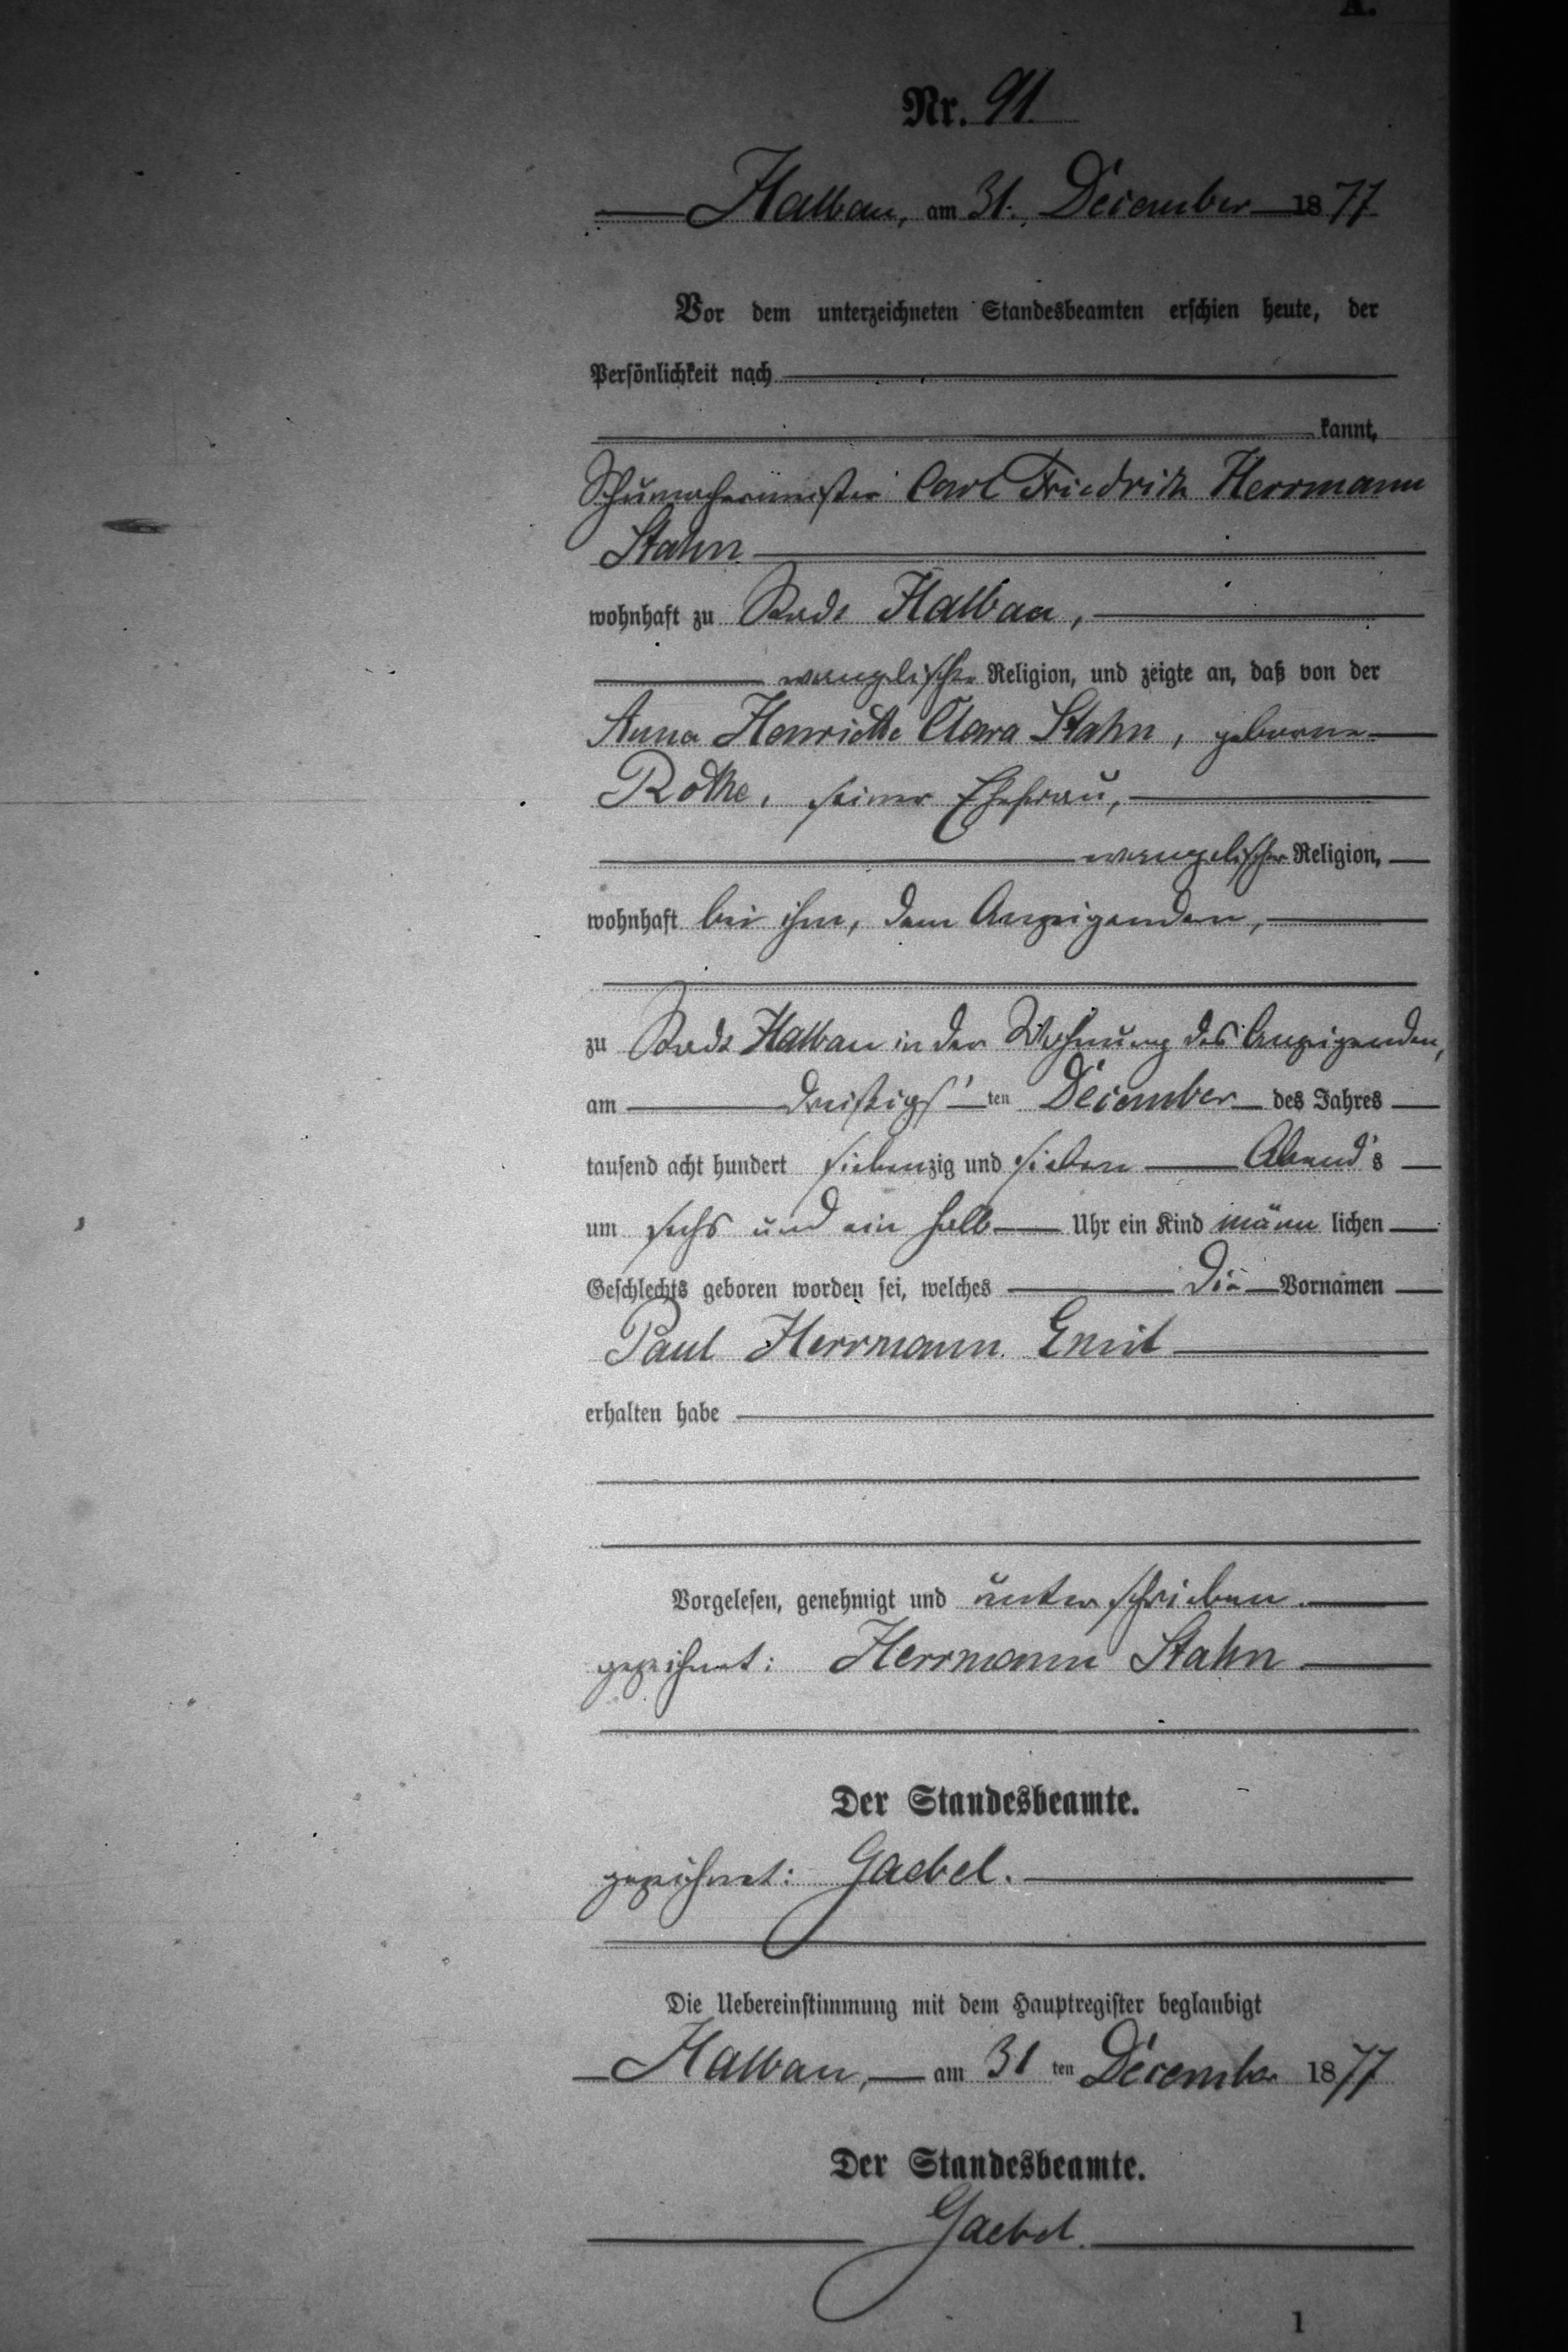 A.
Nr. 91.
Halbau, am 31. December 1877
Vor dem unterzeichneten Standesbeamten erschien heute, der
Persönlichkeit nach
kannt,
Schumachermeister Carl Friedrich Herrmann
Stahn
wohnhaft zu Stadt Halbau,
evangelischer Religion, und zeigte an, daß von der
Anna Henriette Clara Stahn, geborene
Rothe, seiner Ehefrau,
evangelischer Religion,
wohnhaft bei ihm, dem Anzeigenden,
zu Stadt Halbau in der Wohnung des Anzeigenden,
am dreißigsten December des Jahres
tausend acht hundert siebenzig und sieben Abends
um sechs und ein halb Uhr ein Kind männlichen
Geschlechts geboren worden sei, welches die Vornamen
Paul Herrmann Emil
erhalten habe
Vorgelesen, genehmigt und unterschrieben.
gezeichnet: Herrmann Stahn
Der Standesbeamte.
gezeichnet: Gaebel.
Die Uebereinstimmung mit dem Hauptregister beglaubigt
Halbau, am 31ten December 1877
Der Standesbeamte.
Gaebel.
1